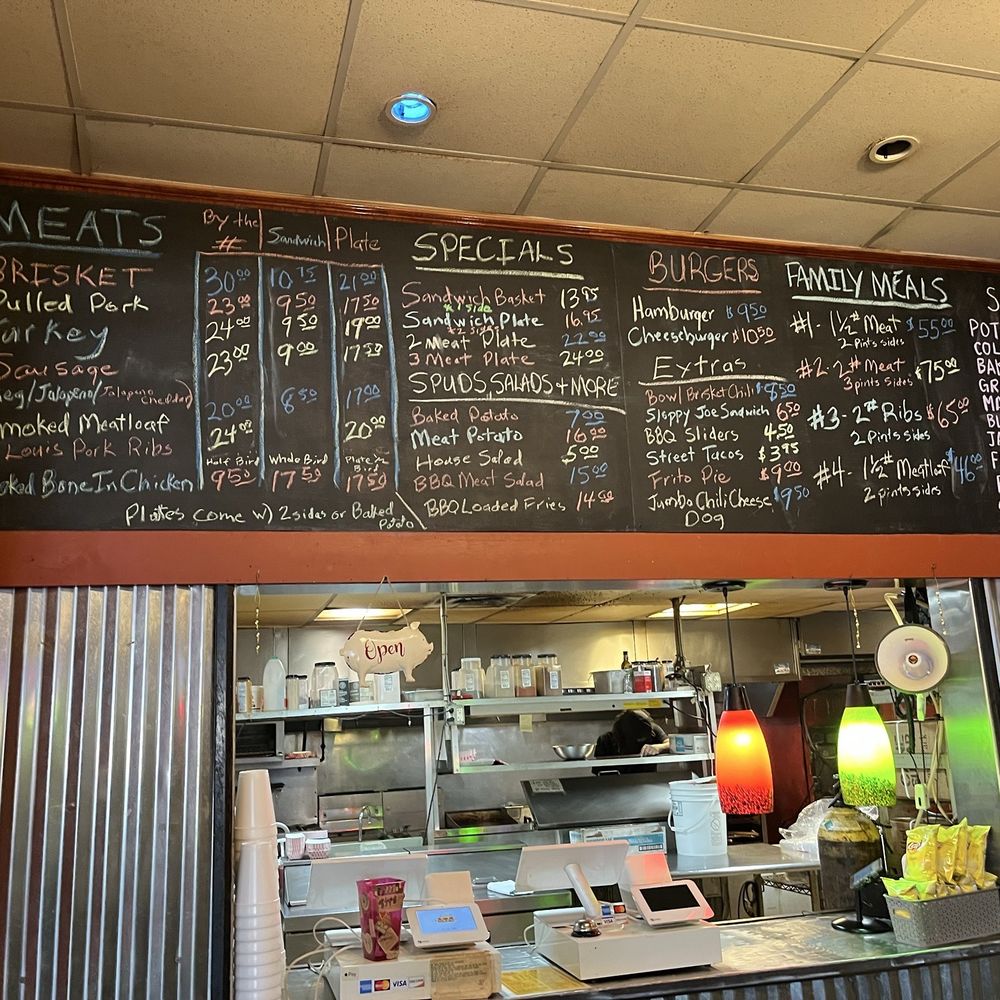 MEATS By the # Sandwich Plate
BRISKET 30.00 10.75 21.00
Pulled Pork 23.00 9.50 17.50
Turkey 24.00 9.50 19.00
Sausage 23.00 9.00 17.50
Reg/Jalapeno/Jalapeno Cheddar) 20.00 8.50 17.00
Smoked Meatloaf 24.00 20.00
Louis Pork Ribs Half Bird Whole Bird Plate 1/2 Bird
Smoked Bone In Chicken 9.50 17.50 17.50
Plates come w) 2 sides or Baked Potato
SPECIALS
Sandwich Basket 13.95
*1 side
Sandwich Plate 16.95
2 Meat Plate 22.00
3 Meat Plate 24.00
SPUDS, SALADS + MORE
Baked Potato 7.00
Meat Potato 16.00
House Salad 5.00
BBQ Meat Salad 15.00
BBQ Loaded Fries 14.00
BURGERS
Hamburger $9.50
Cheeseburger $10.50
Extras
Bowl Brisket Chili $8.50
Sloppy Joe Sandwich 6.50
BBQ Sliders 4.50
Street Tacos $3.95
Frito Pie $9.00
Jumbo Chili Cheese $9.50
Dog
FAMILY MEALS
#1 - 1 1/2# Meat $55.00
2 Pints sides
#2 - 2# Meat $75.00
3 pints sides
#3 - 2# Ribs $65.00
2 Pints sides
#4 - 1 1/2# Meatloaf $46.00
2 pints sides
S
POT
COL
BA
GR
M
BU
J
F
Open
Pay
VISA
VISA
Lay's